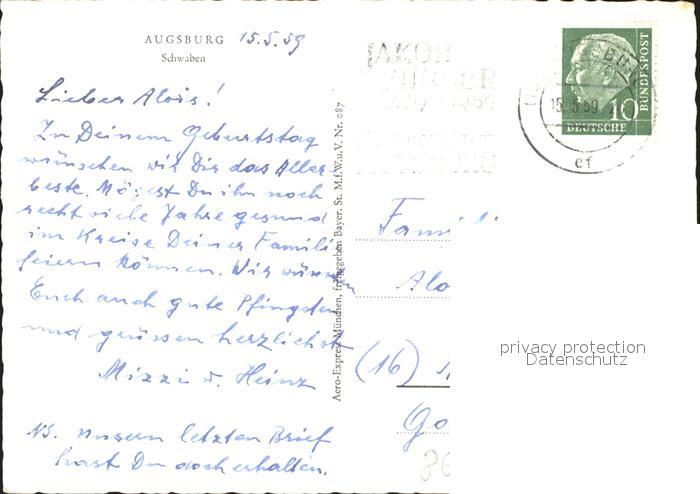 AUGSBURG 15.5.59
Schwaben
Lieber Alois!
Zu Deinem Geburtstag
wünschen wir Dir das Aller
beste. Mögest Du ihn noch
recht viele Jahre gesund
im Kreise Deiner Famili
feiern können. Wir wünschen
Euch auch gute Pfingsten
und grüssen herzlichst
Mizzi u. Heinz
NS. unsern letzten Brief
hast Du doch erhalten.
Aero-Express München, freigegeben Bayer. St. M.f.W.u.V. Nr. 087
JAKOB
FUGGER
1459 - 1959
AUGSBURG
15.5.59
ef
10
DEUTSCHE
BUNDESPOST
Famili
Alo
(16)
Go
privacy protection
Datenschutz